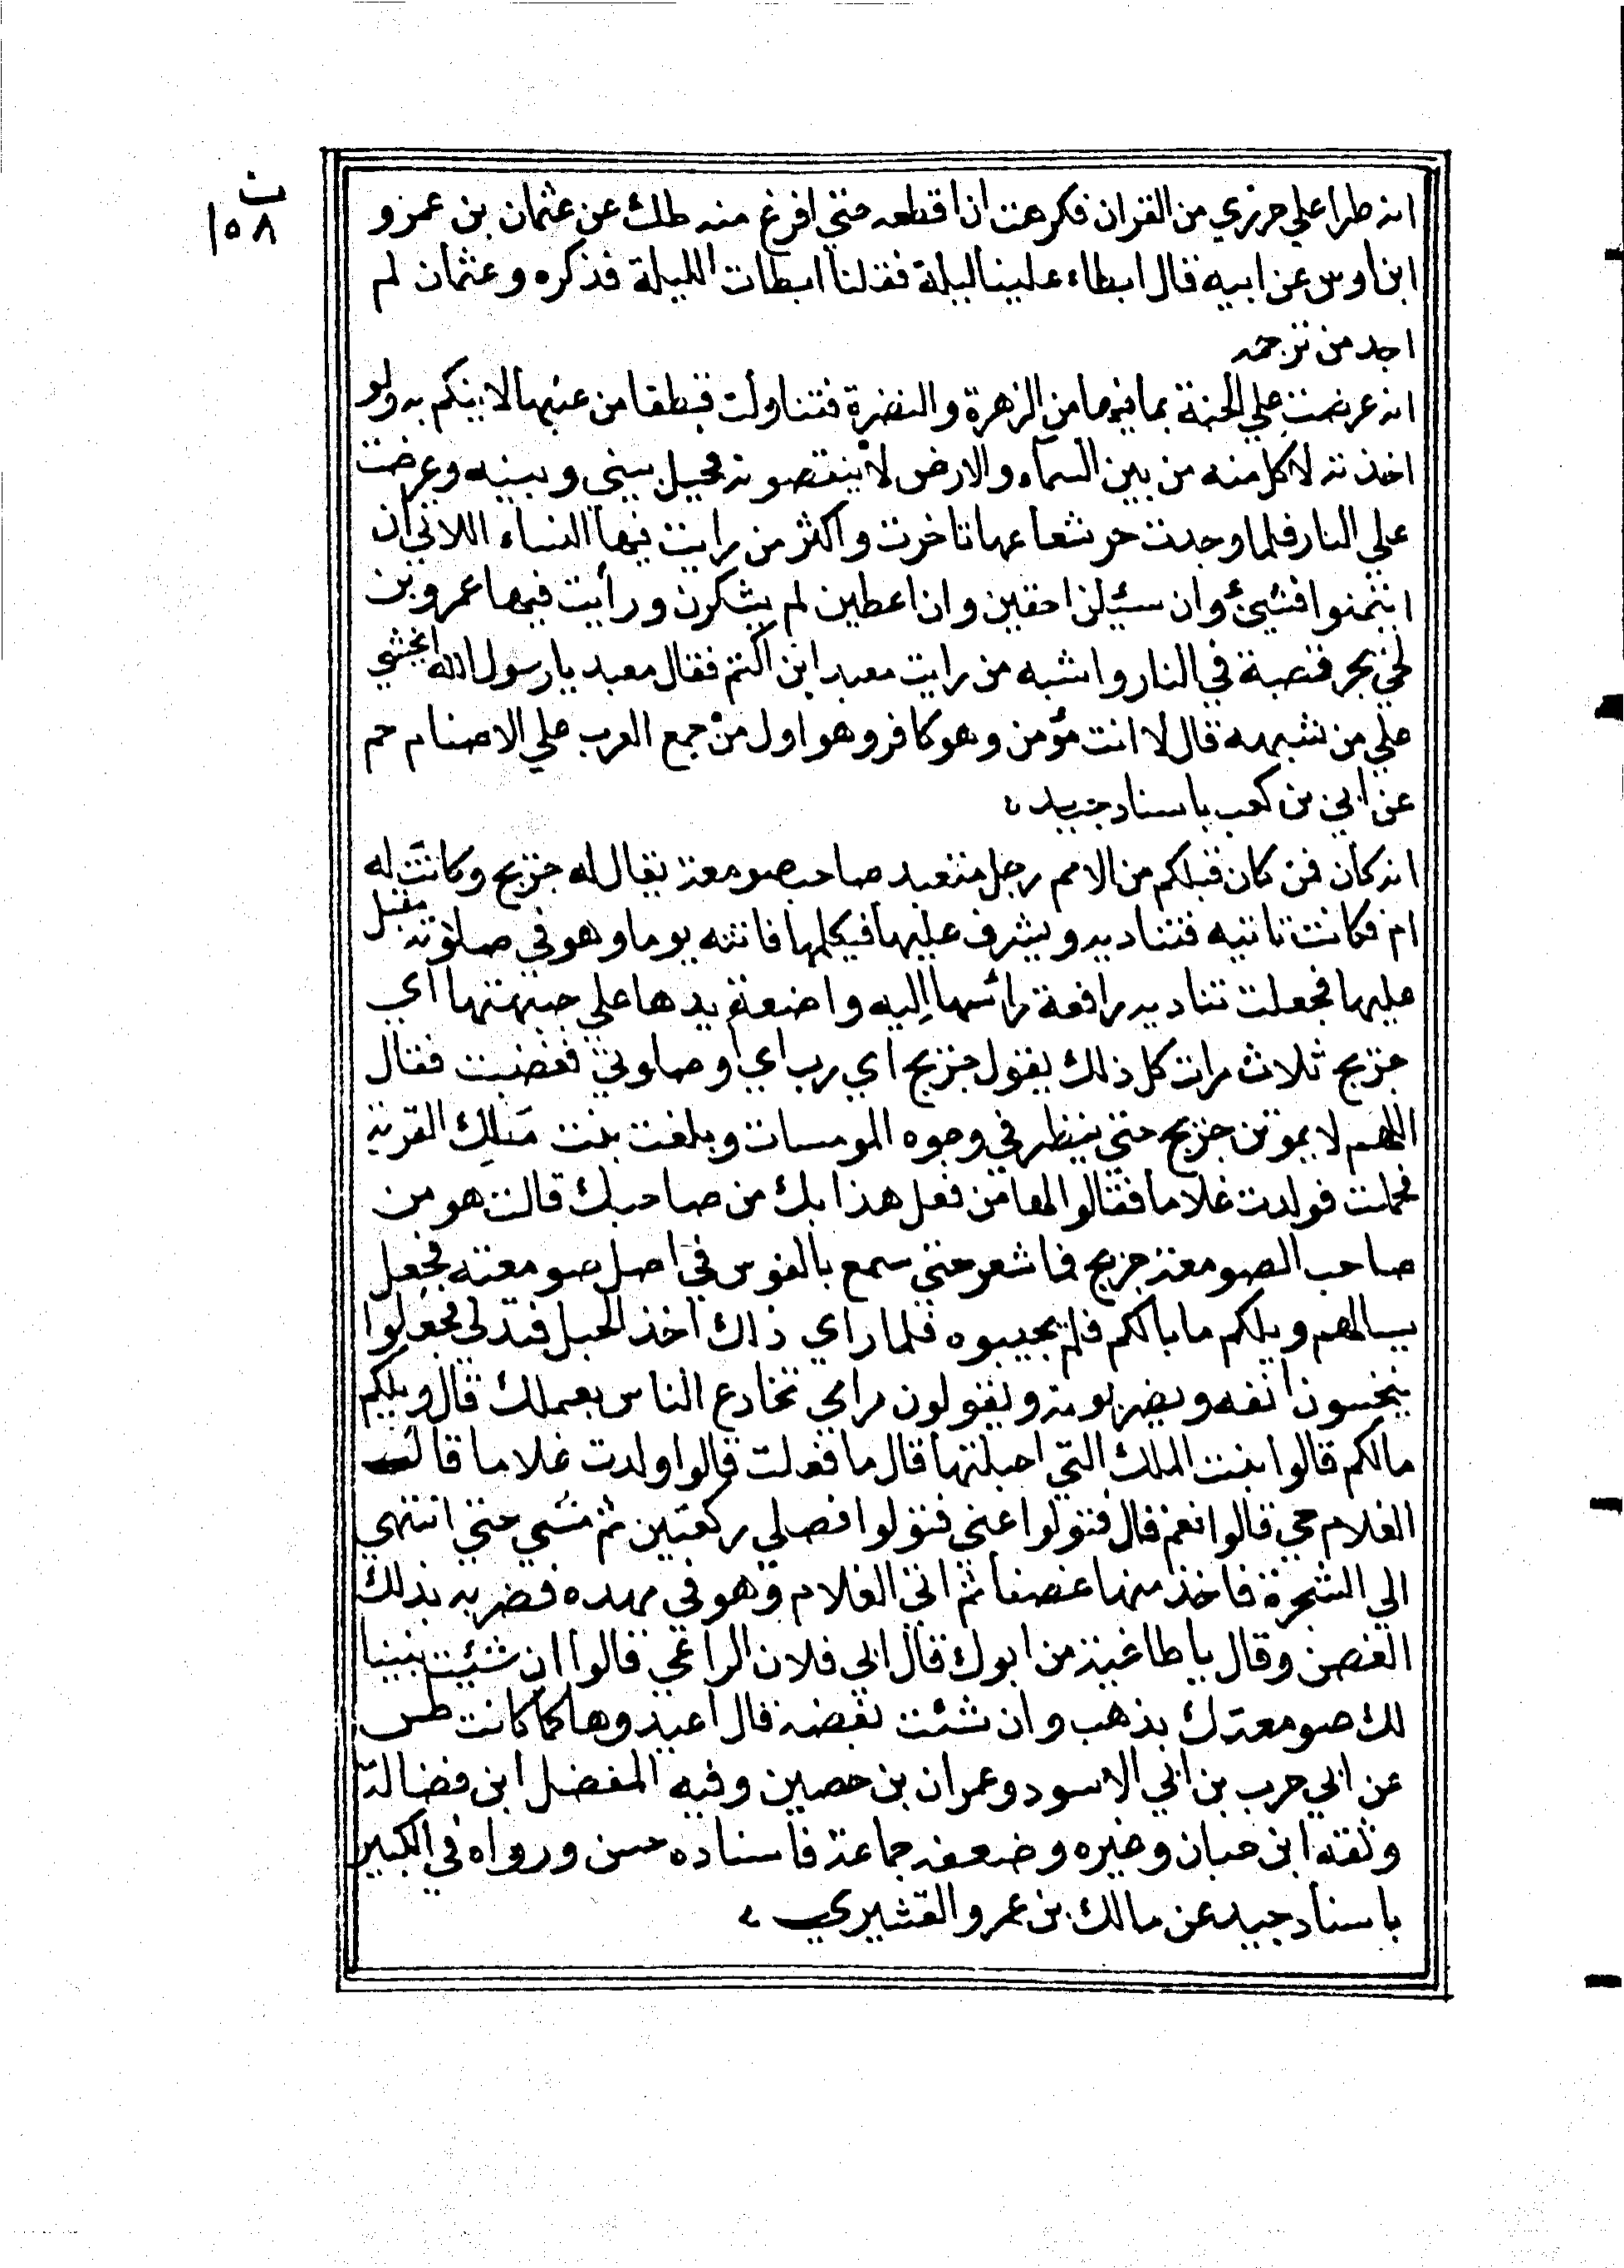 ث
١٥٨
انه طرا علي حزبي من القران فكرهت ان اقطعه حتي افرغ منه طلك عن عثمان بن عمرو
ابن اوس عن ابيه قال ابطاء علينا ليلة فقلنا ابطات الليلة فذكره وعثمان لم
اجد من ترجمه
انه عرضت علي الجنة بما فيها من الزهرة والنضرة فتناولت قطفا من عنبها لاتيكم به ولو
اخذته لاكل منه من بين السمآء والارض لا ينقصونه فحيل بيني وبينه وعرضت
علي النار فلما وجدت حر شعاعها تاخرت واكثر من رايت فيها النساء اللاتي ان
ايتمنوا افشين وان سئيلن احفين وان اعطين لم يشكرن ورأيت فيها عمرو بن
لحي يجر قصبة في النار واشبه من رايت معبد ابن اكتم فقال معبد يا رسول الله ايخشي
علي من شبهه قال لا انت مؤمن وهو كافر وهو اول من جمع العرب علي الاصنام حم
عن ابي بن كعب باسناد جيد
انه كان فمن كان قبلكم من الامم رجل متعبد صاحب صومعة يقال له جريج وكانت له
ام فكانت تاتيه فتناديه ويشرف عليها فيكلمها فاتته يوما وهو في صلوته مقبل
عليها فجعلت تناديه رافعة رائسها اليه واضعة يدها علي جبهتها اي
جريج ثلاث مرات كل ذلك يقول جريج اي رب اي او صلوتي فغضبت فقال
اللهم لا يموتن جريج حتي ينظر في وجوه المومسات وبلغت بنت ملك القرية
فحملت فولدت غلاما فقالوا لها من فعل هذا بك من صاحبك قالت هو من
صاحب الصومعة جريج فما شعر حتي سمع بالفوس في اصل صومعته فجعل
يسالهم ويلكم ما بالكم فلم يجيبوه فلما راي ذلك اخذ الحبل فتدلى فجعلوا
ينخسون انفه ويضربونه ويقولون مرايي تخادع الناس بعملك قال ويلكم
مالكم قالوا بنت الملك التي احبلتها قال ما فعلت قالوا ولدت غلاما قال
الغلام حي قالوا نعم قال فتولوا عني فتولوا فصلي ركعتين ثم مشي حتي انتهي
الي الشجرة فاخذ منها غصنا ثم اتي الغلام وهو في مهده فضربه بذلك
الغصن وقال يا طاغية من ابوك قال ابي فلان الراعي قالوا ان شئيت بنينا
لك صومعتك بذهب وان شئت بفضة قال اعيدوها كما كانت طس
عن ابي حرب بن ابي الاسود وعمران بن حصين وفيه المفضل ابن فضالة
وثقته ابن حبان وغيره وضعفه جماعة فاسناده حسن ورواه في الكبير
باسناد جيد عن مالك بن عمرو القشيري